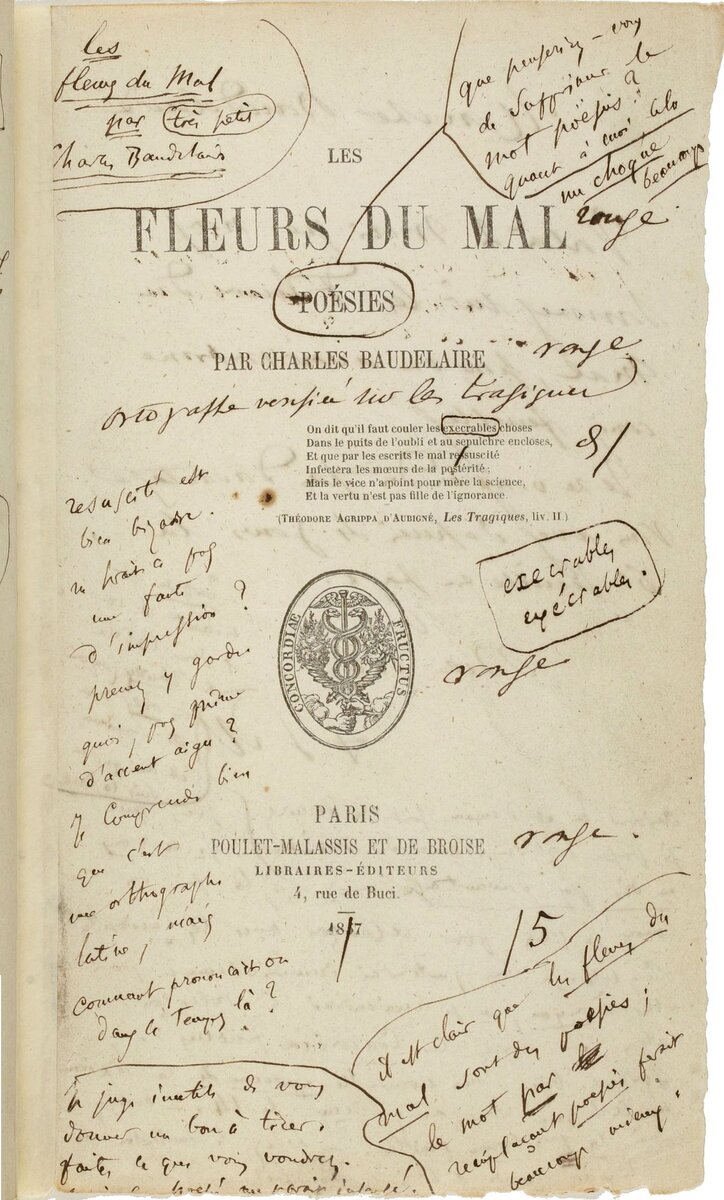 les
fleurs du Mal
par très petit
Charles Baudelaire
que penseriez-vous
de supprimer le
mot poësies ?
quant à moi, cela
me choque
beaucoup
LES
FLEURS DU MAL
rouge
POÉSIES
PAR CHARLES BAUDELAIRE
rouge
ortografe vérifiée sur les tragiques
On dit qu'il faut couler les execrables choses
Dans le puits de l'oubli et au sepulchre encloses,
Et que par les escrits le mal ressuscité
Infectera les mœurs de la postérité;
Mais le vice n'a point pour mère la science,
Et la vertu n'est pas fille de l'ignorance.
(THÉODORE AGRIPPA D'AUBIGNÉ, Les Tragiques, liv. II.)
resuscité est
bien bizarre.
ne serait-ce pas
une faute
d'impression ?
prenez y garde
quoi, pas même
d'accent aigu ?
Je comprends bien
que c'est
une orthographe
latine, mais
comment prononçait-on
dans ce temps là ?
execrables
exécrables.
CONCORDIÆ FRUCTUS
rouge
PARIS
POULET-MALASSIS ET DE BROISE
rouge.
LIBRAIRES-ÉDITEURS
4, rue de Buci.
1857
/5
il est clair que les fleurs du
mal sont des poësies ;
le mot par
remplaçant poësies ferait
beaucoup mieux.
Je juge inutile de vous
donner un bon à tirer.
faites ce que vous voudrez.